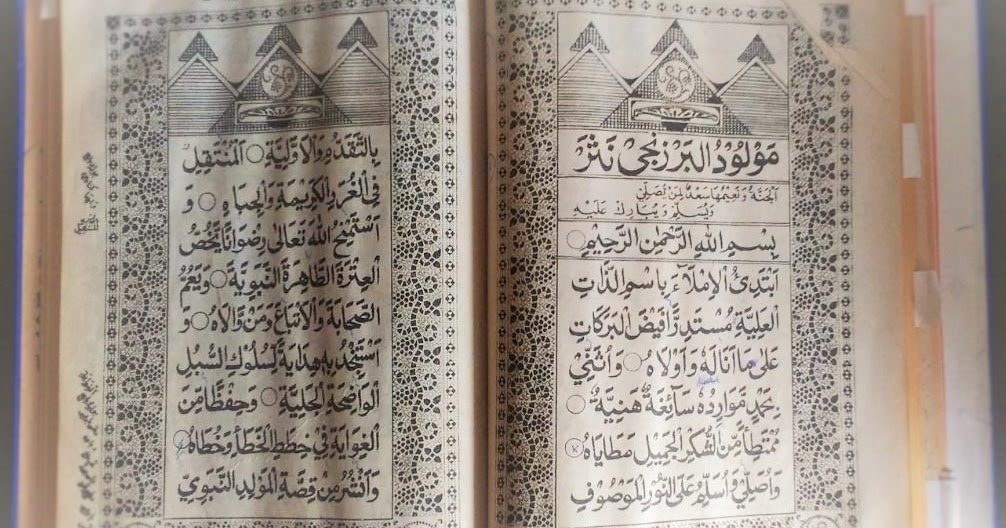 مَوْلُوْدُ الْبَرْزَنْجِيْ نَثَرْ
اَلْجَنَّةُ وَنَعِيْمُهَا سَعْدٌ لِمَنْ يُصَلِّيْ
وَيُسَلِّمُ وَيُبَارِكُ عَلَيْهِ
بِسْمِ اللهِ الرَّحْمٰنِ الرَّحِيْمِ
اَبْتَدِئُ الْاِمْلَاءَ بِاسْمِ الذَّاتِ
الْعَلِيَّةِ مُسْتَدِرًّا فَيْضَ الْبَرَكَاتِ
عَلٰى مَا اَنَالَهُ وَاَوْلَاهُ ○ وَاُثَنِّيْ
بِحَمْدٍ مَوَارِدُهُ سَائِغَةٌ هَنِيَّةٌ ○
مُمْتَطِأً مِّنَ الشُّكْرِ الْجَمِيْلِ مَطَايَاهُ ○
وَاُصَلِّيْ وَاُسَلِّمُ عَلَى النُّوْرِ الْمَوْصُوْفِ
بِالتَّقَدُّمِ وَالْاَوَّلِيَّةِ ○ اَلْمُنْتَقِلِ
فِي الْغُرَرِ الْكَرِيْمَةِ وَالْجِبَاهِ ○ وَ
اَسْتَمِيْحُ اللهَ تَعَالٰى رِضْوَانًا يَّخُصُّ
الْعِتْرَةَ الطَّاهِرَةَ النَّبَوِيَّةَ ○ وَيَعُمُّ
الصَّحَابَةَ وَالْاَتْبَاعَ وَمَنْ وَّالَاهُ ○ وَ
اَسْتَجْدِيْهِ هِدَايَةً لِسُلُوْكِ السُّبُلِ
الْوَاضِحَةِ الْجَلِيَّةِ ○ وَحِفْظًا مِّنَ
الْغَوَايَةِ فِيْ خِطَطِ الْخَطَأِ وَخُطَاهُ ○
وَاَنْشُرُ مِنْ قِصَّةِ الْمَوْلِدِ النَّبَوِيِّ